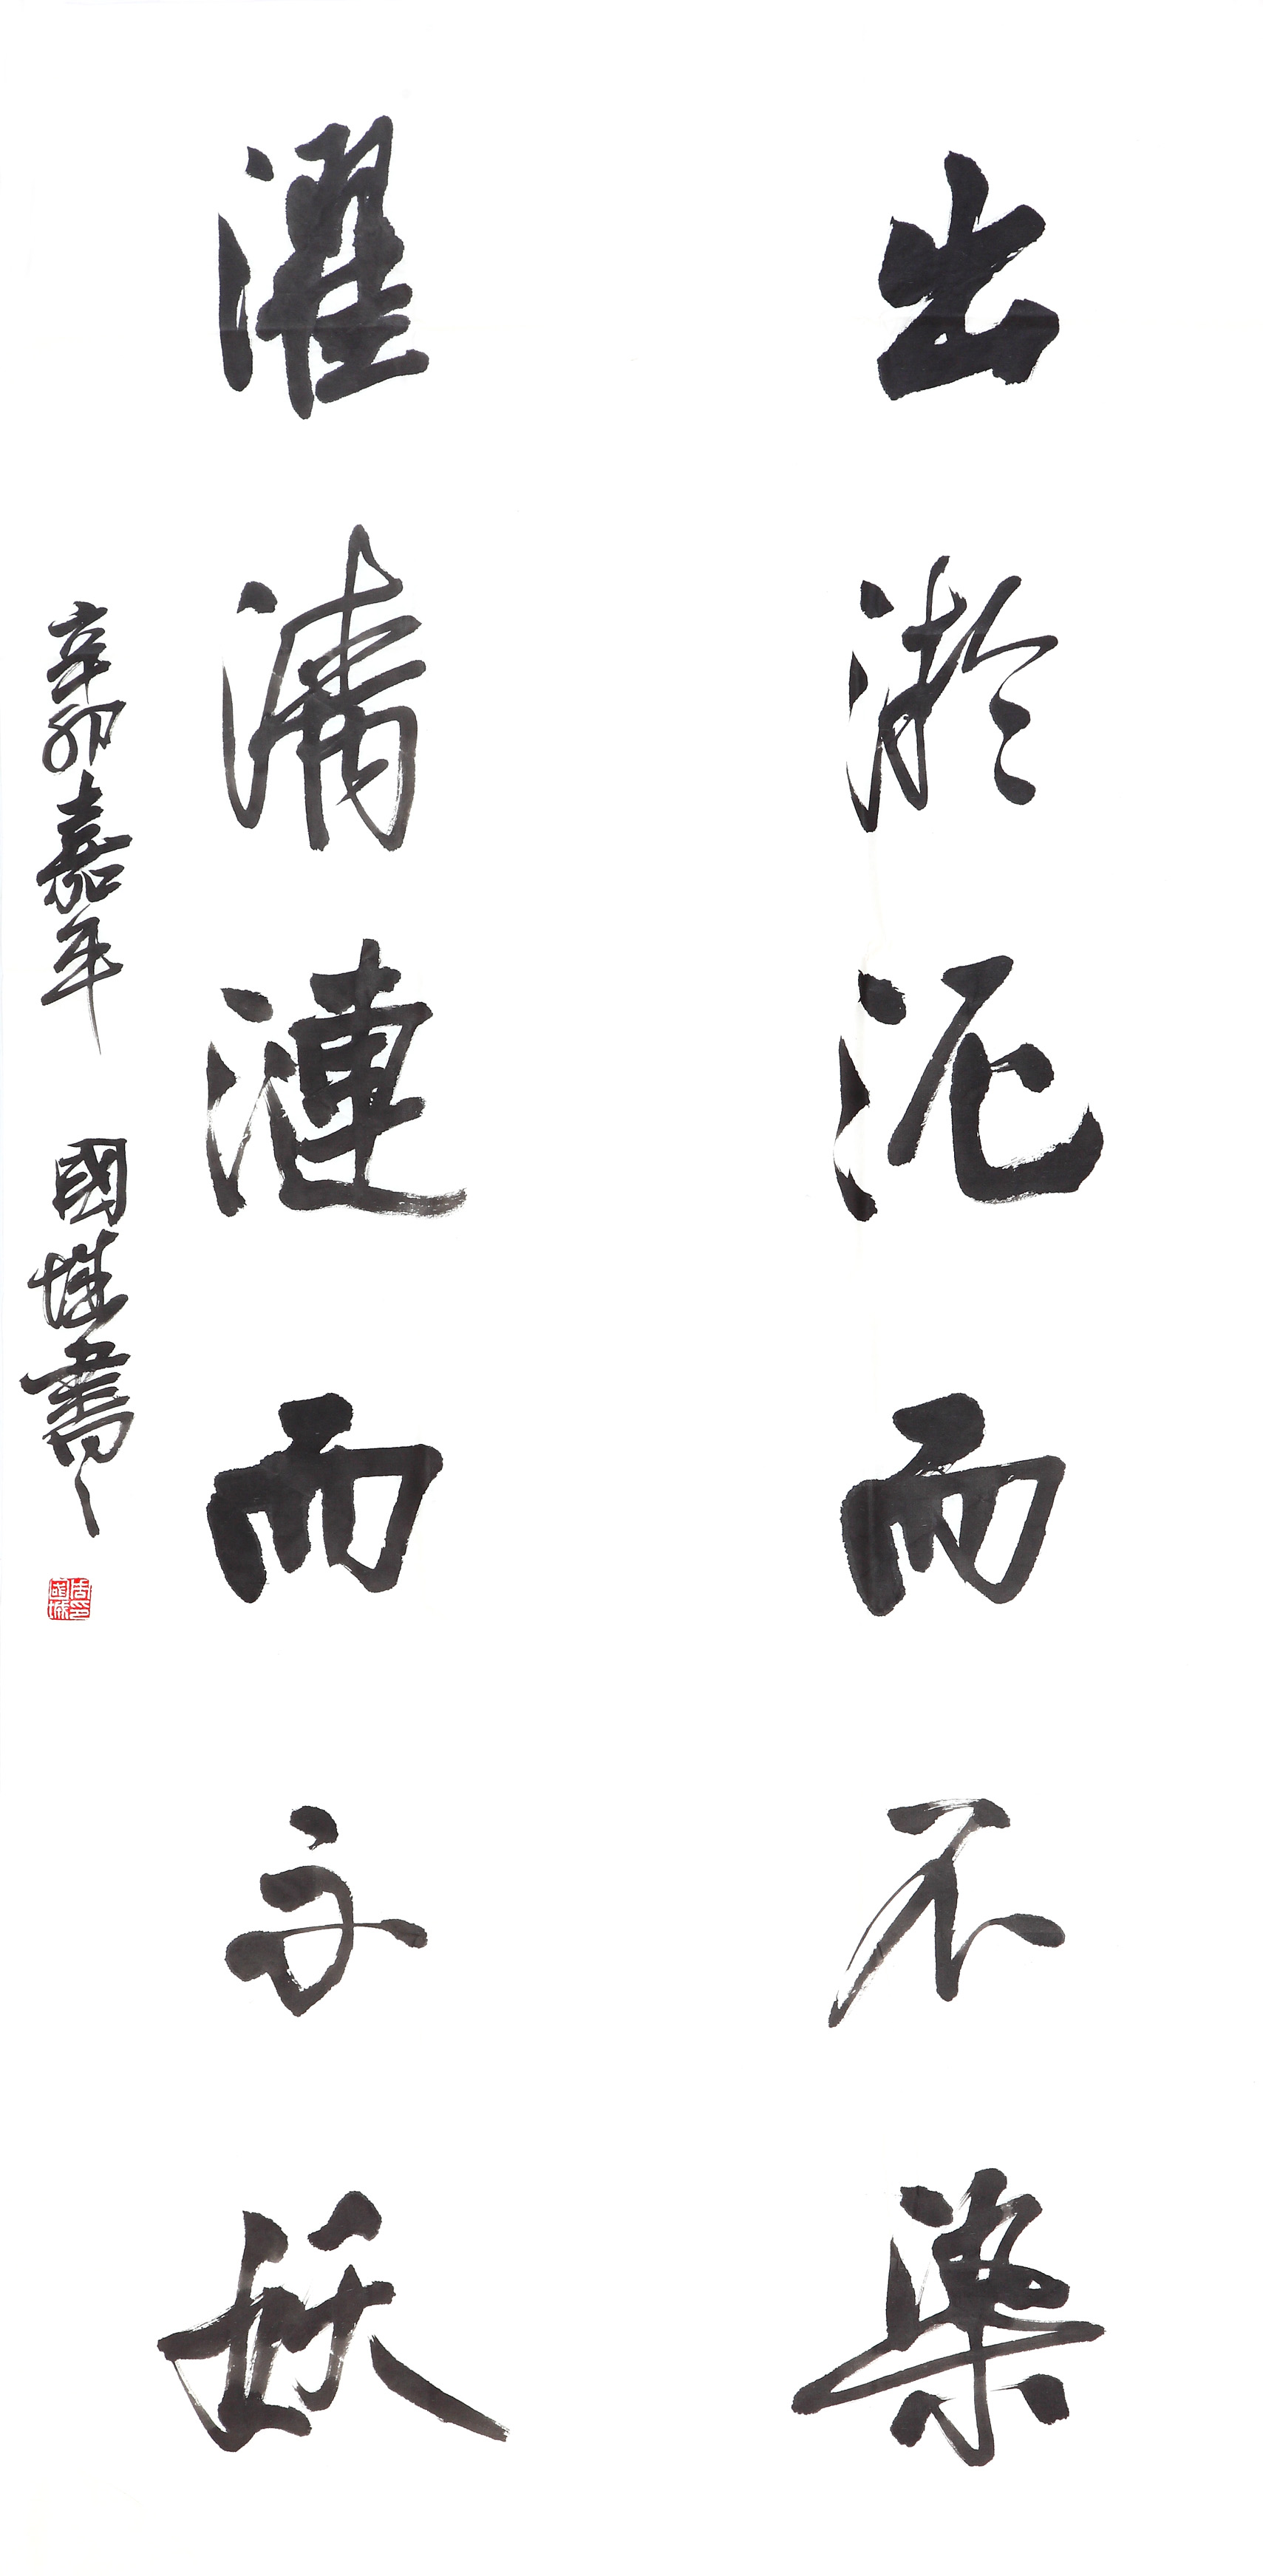 出淤泥而不染
濯清漣而不妖
辛卯嘉年 國城書
周印國城